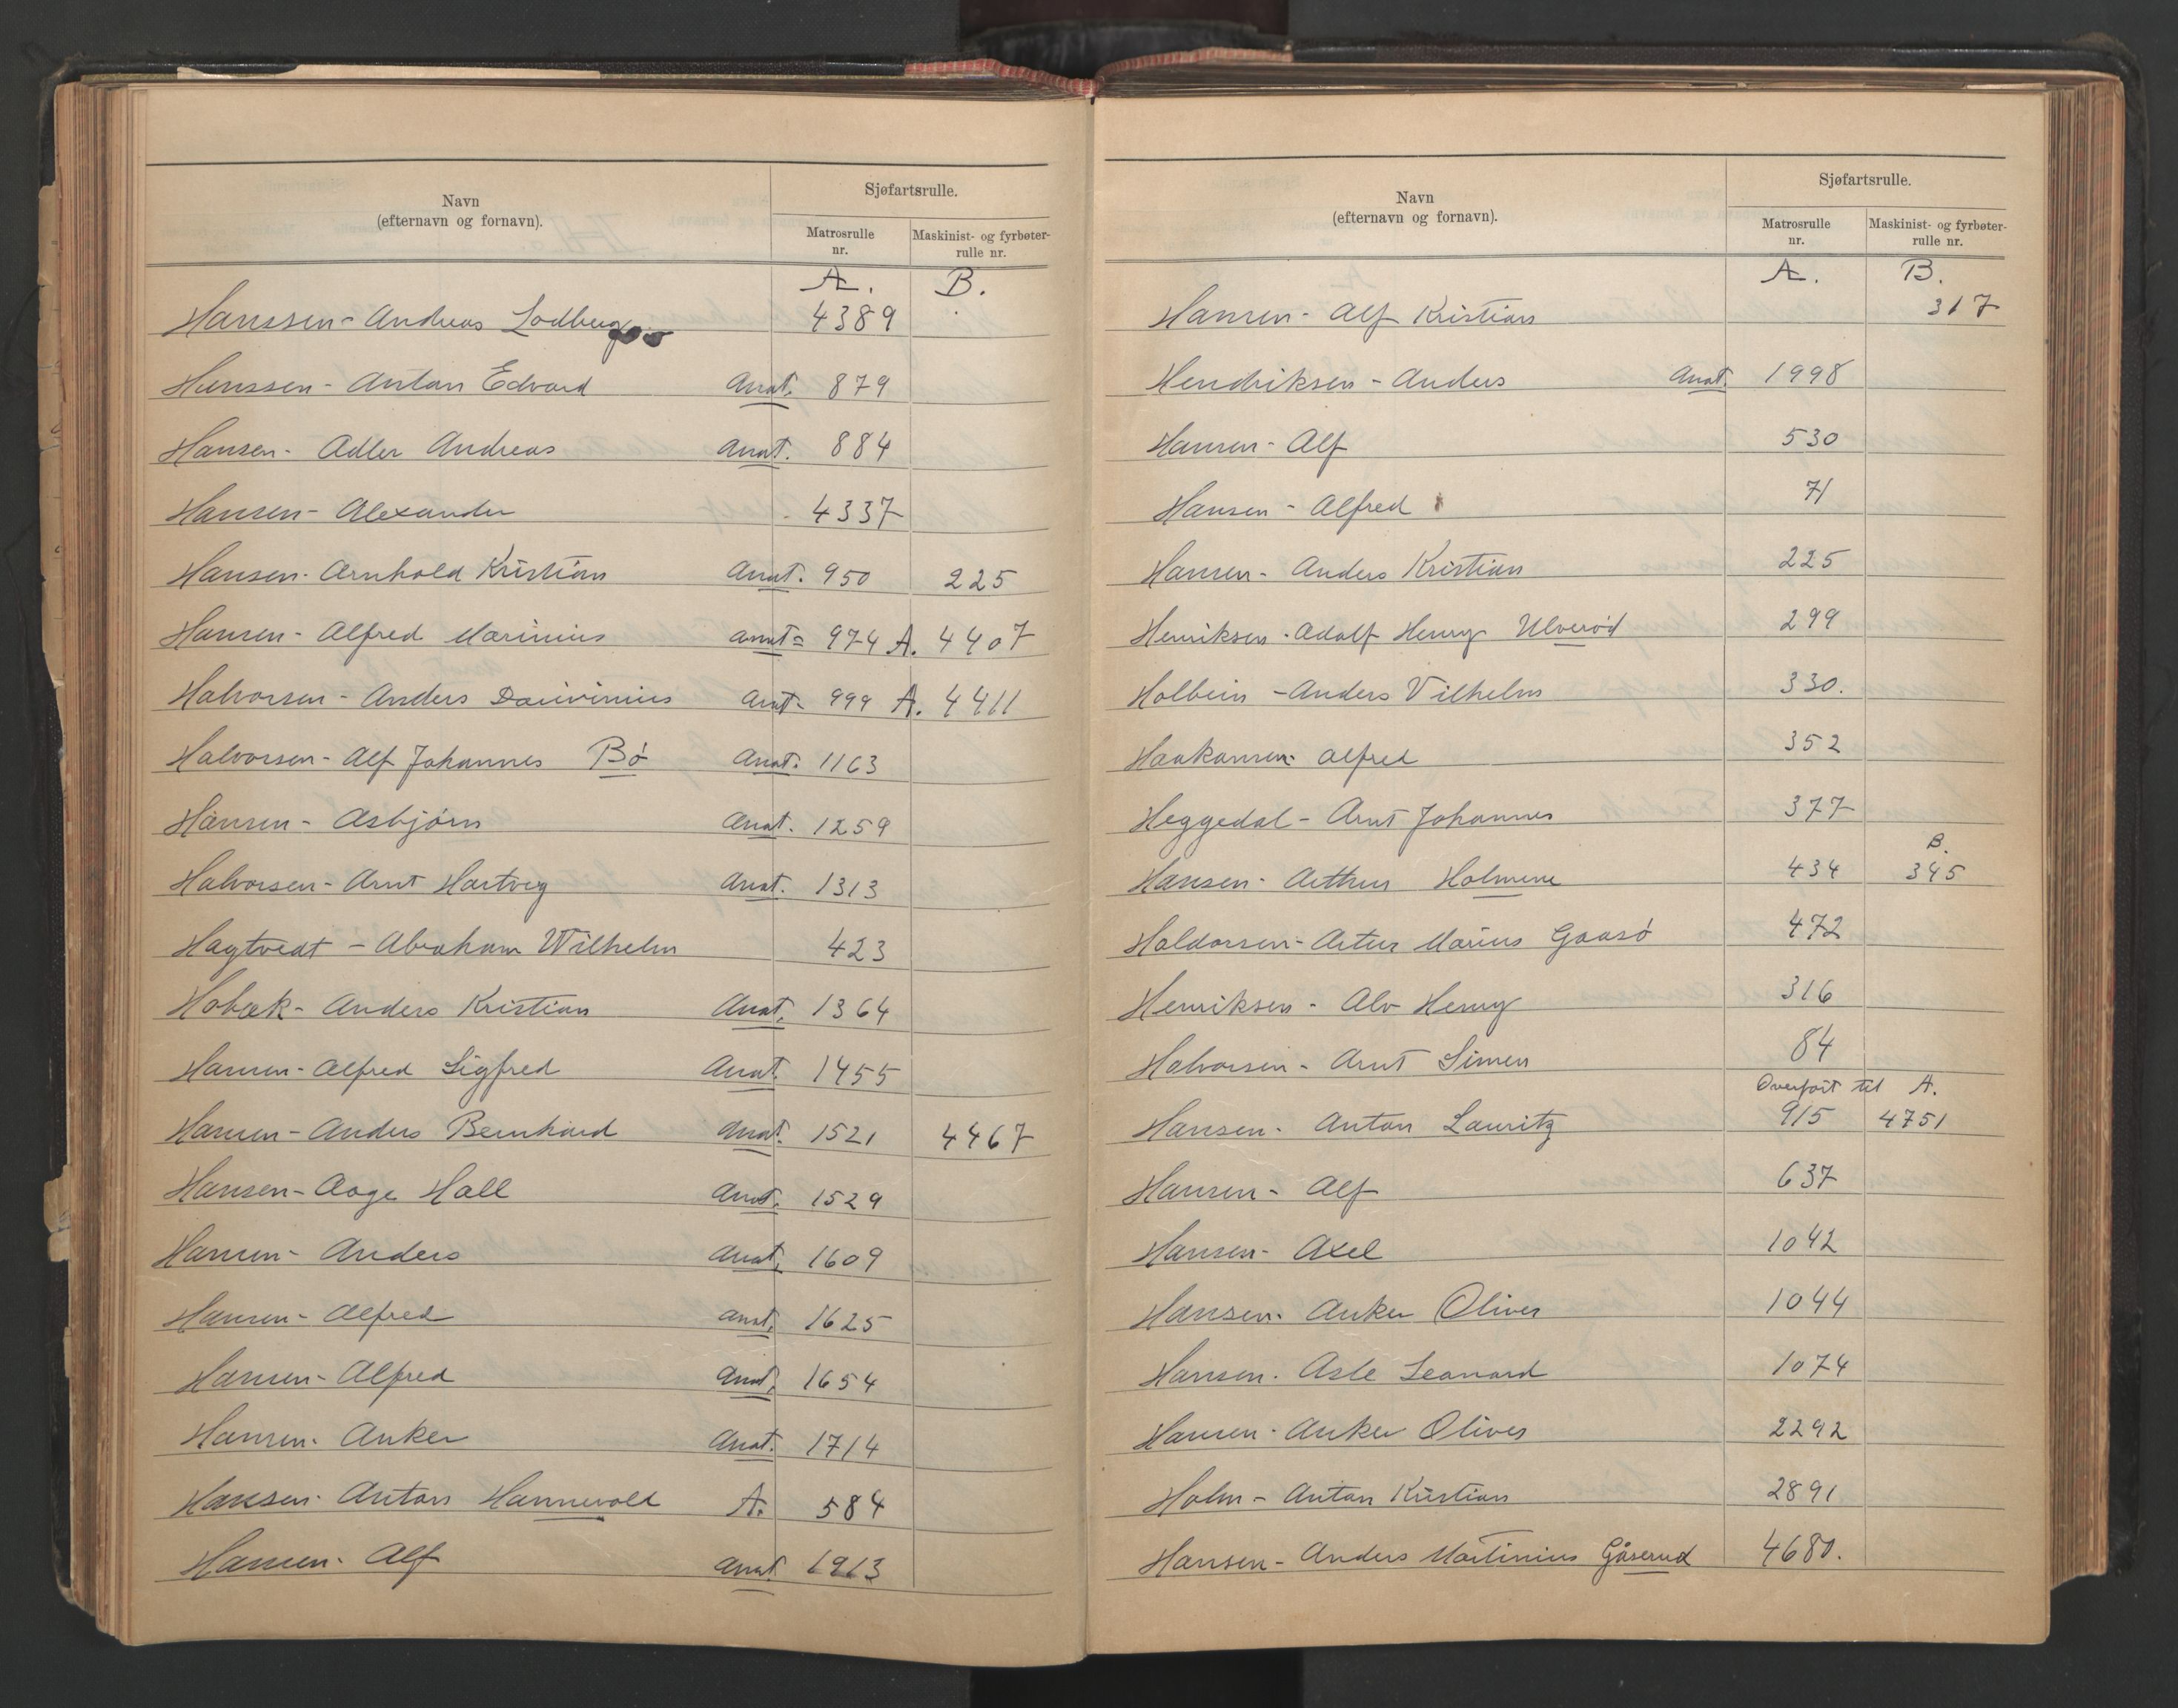 Navn
(efternavn og fornavn).
Sjøfartsrulle.
Matrosrulle nr.
Maskinist- og fyrbøter-rulle nr.
A. B.
Hanssen - Andreas Lodberg 4389
Hanssen - Anton Edvard Anat. 879
Hansen - Adler Andreas Anat. 884
Hansen - Alexander 4337
Hansen - Arnhold Kristian Anat. 950 225
Hansen - Alfred Marinius Anat. 974 A. 4407
Halvorsen - Anders Anat. 999 A. 4411
Halvorsen - Alf Johannes Bö Anat. 1163
Hansen - Asbjörn Anat. 1259
Halvorsen - Arnt Hartvig Anat. 1313
Hagtvedt - Abraham Wilhelm 423
Hobæk - Anders Kristian Anat. 1364
Hansen - Alfred Sigfred Anat. 1455
Hansen - Anders Bernhard Anat. 1521 4467
Hansen - Aage Hall Anat. 1529
Hansen - Anders Anat. 1609
Hansen - Alfred Anat. 1625
Hansen - Alfred Anat. 1654
Hansen - Anker Anat. 1714
Hansen - Anton Hannevold A. 584
Hansen - Alf Anat. 1913
Navn
(efternavn og fornavn).
Sjøfartsrulle.
Matrosrulle nr.
Maskinist- og fyrbøter-rulle nr.
A. B.
Hansen - Alf Kristian 317
Hendriksen - Anders Anat. 1998
Hansen - Alf 530
Hansen - Alfred 71
Hansen - Anders Kristian 225
Henriksen - Adolf Henry Ulveröd 299
Holbein - Anders Vilhelm 330.
Haakonsen - Alfred 352
Heggedal - Arnt Johannes 377
B.
Hansen - Arthur Holmene 434 345
Haldorsen - Artur Marius Gaasö 472
Henriksen - Alv Henry 316
Halvorsen - Arnt Simen 84
Overfört til A.
Hansen - Anton Lauritz 915 4751
Hansen - Alf 637
Hansen - Axel 1042
Hansen - Anker Oliver 1044
Hansen - Asle Leonard 1074
Hansen - Anker Oliver 2292
Holm - Anton Kristian 2891
Hansen - Anders Martinius Gåserud 4680.